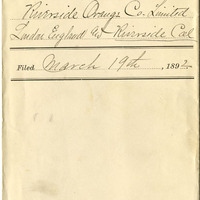 Riverside Orange Co. Limited
London England & Riverside Cal
Filed March 19th, 1892